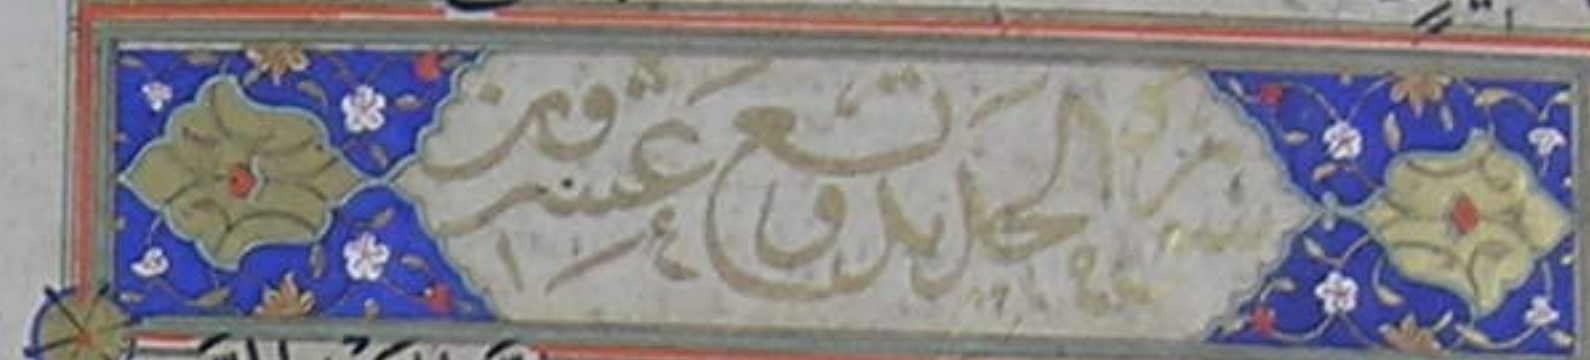 سورة الحديد تسع وعشرون